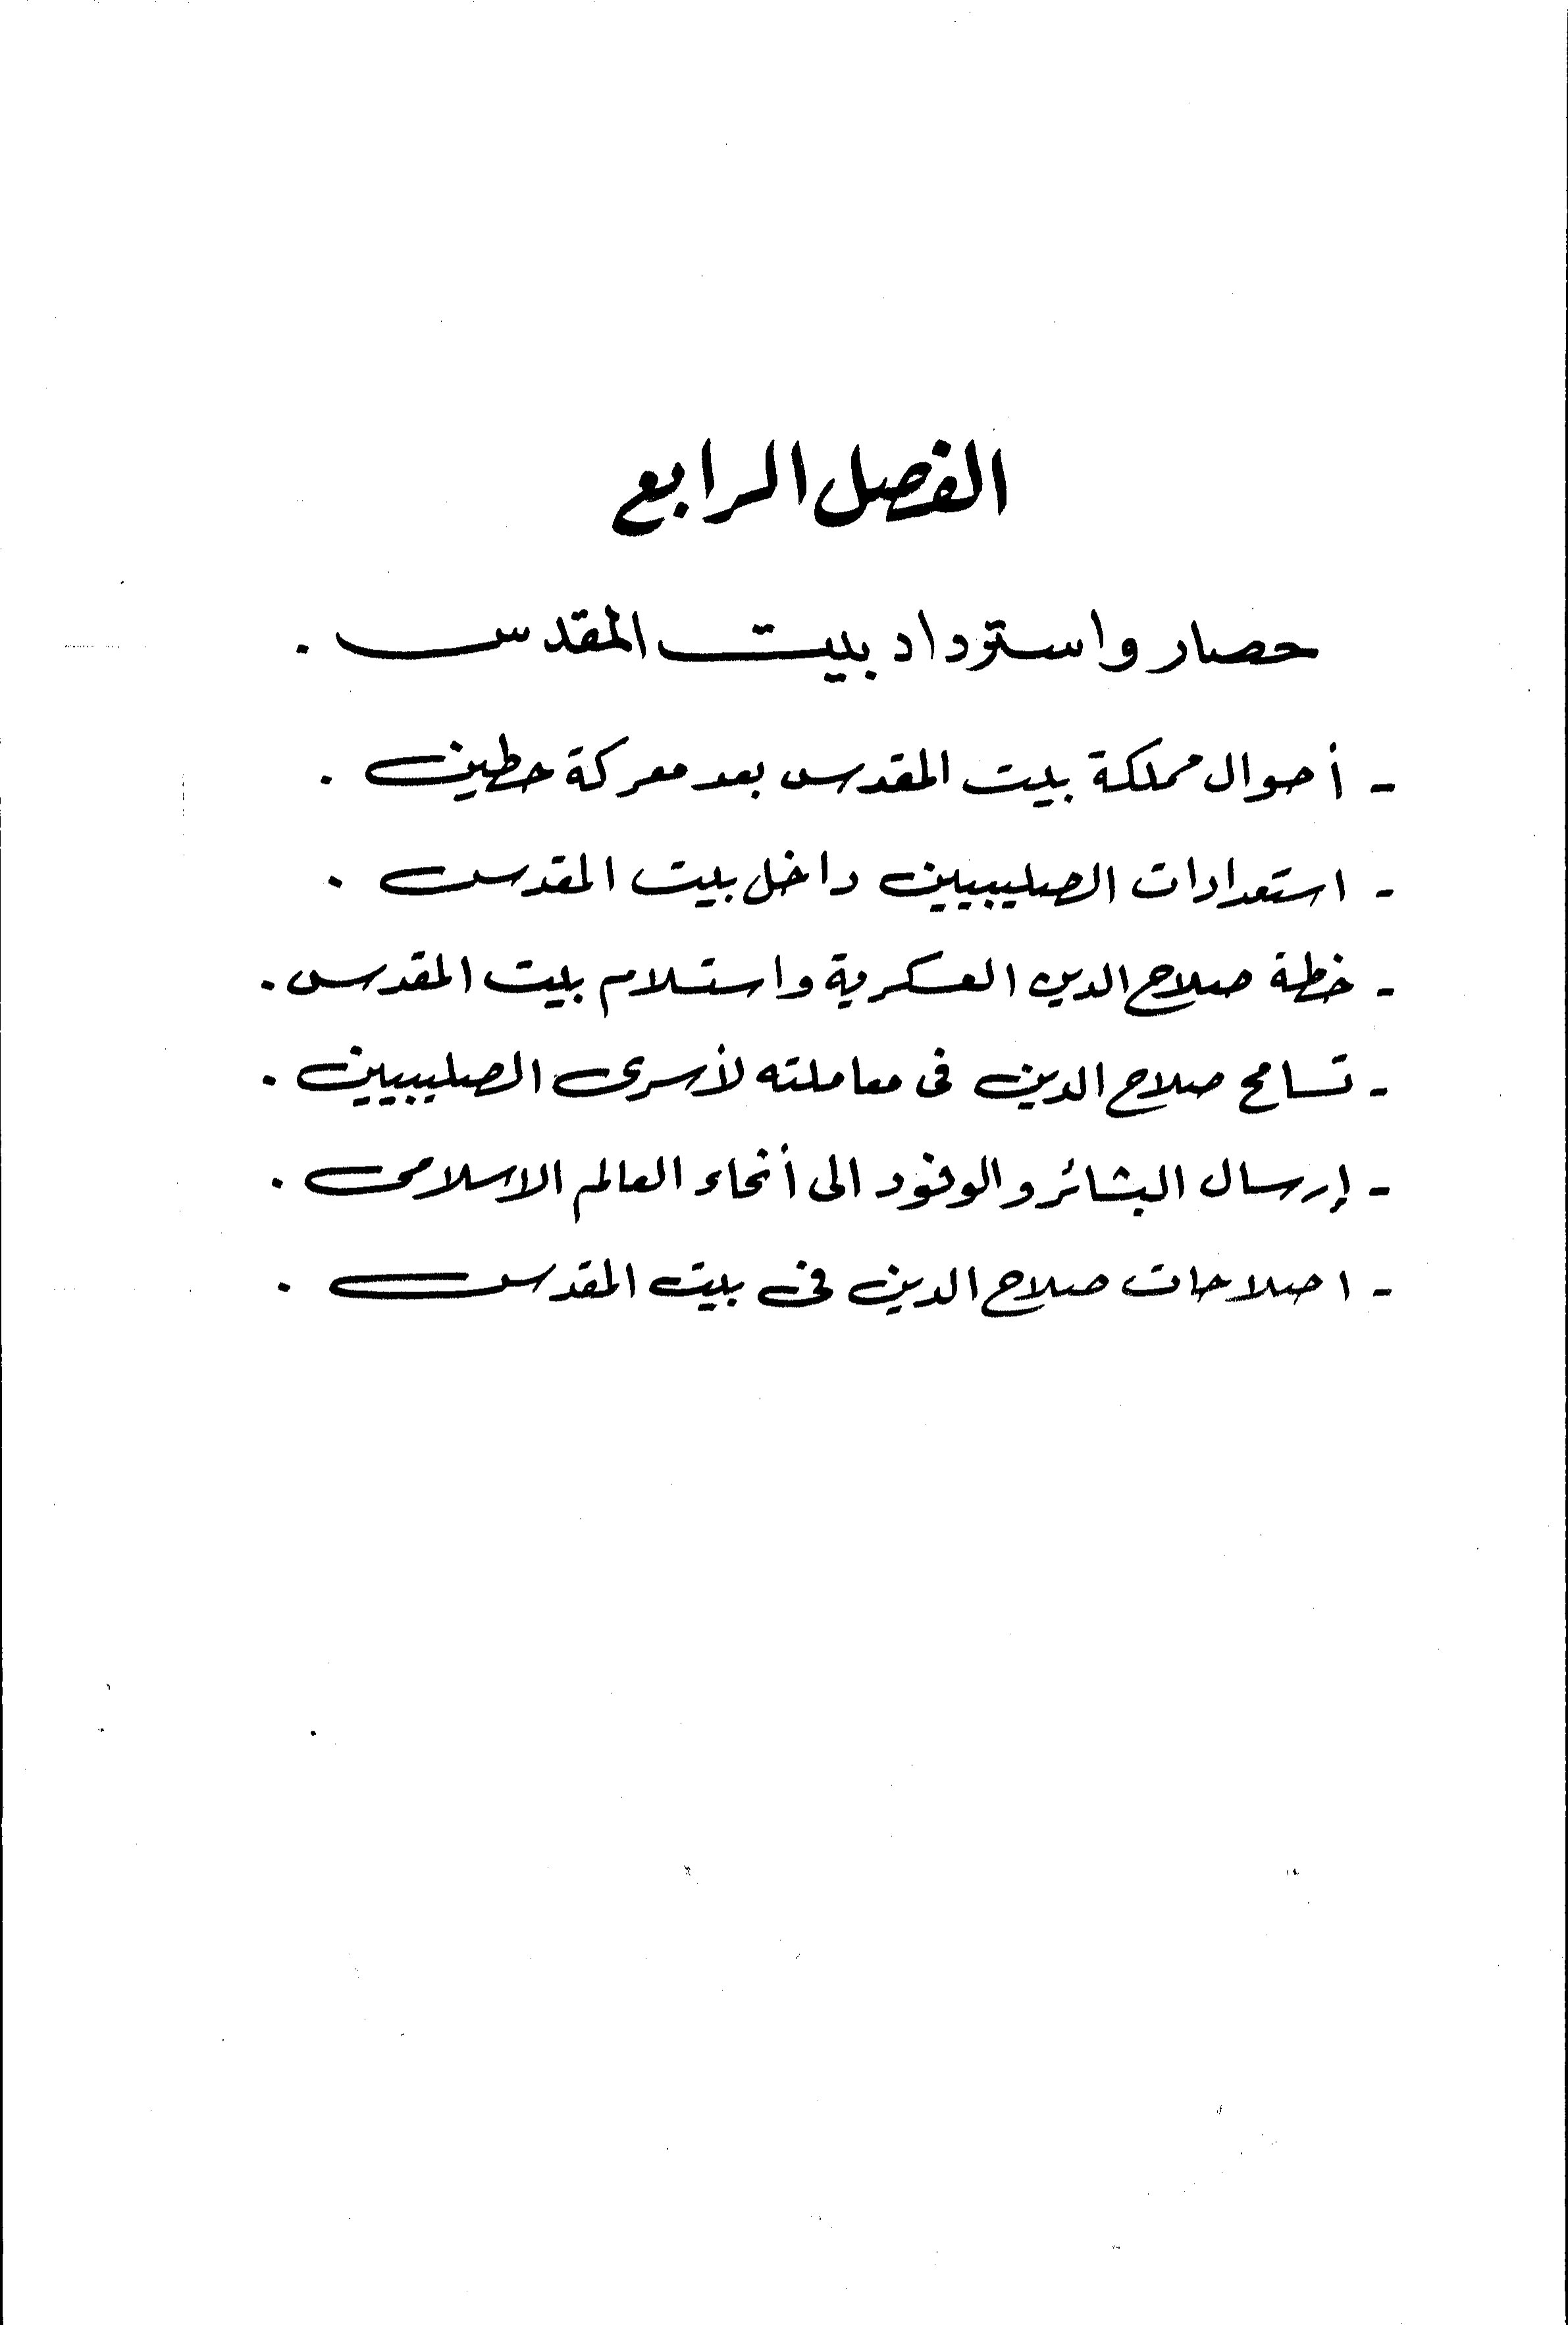 الفصل الرابع
حصار واسترداد بيت المقدس .
- أحوال مملكة بيت المقدس بعد معركة حطين .
- استعدادات الصليبيين داخل بيت المقدس .
- خطة صلاح الدين العسكرية واستلام بيت المقدس .
- تسامح صلاح الدين فى معاملته لأسرى الصليبيين .
- إرسال البشائر والوفود الى أنحاء العالم الاسلامى .
- اصلاحات صلاح الدين فى بيت المقدس .